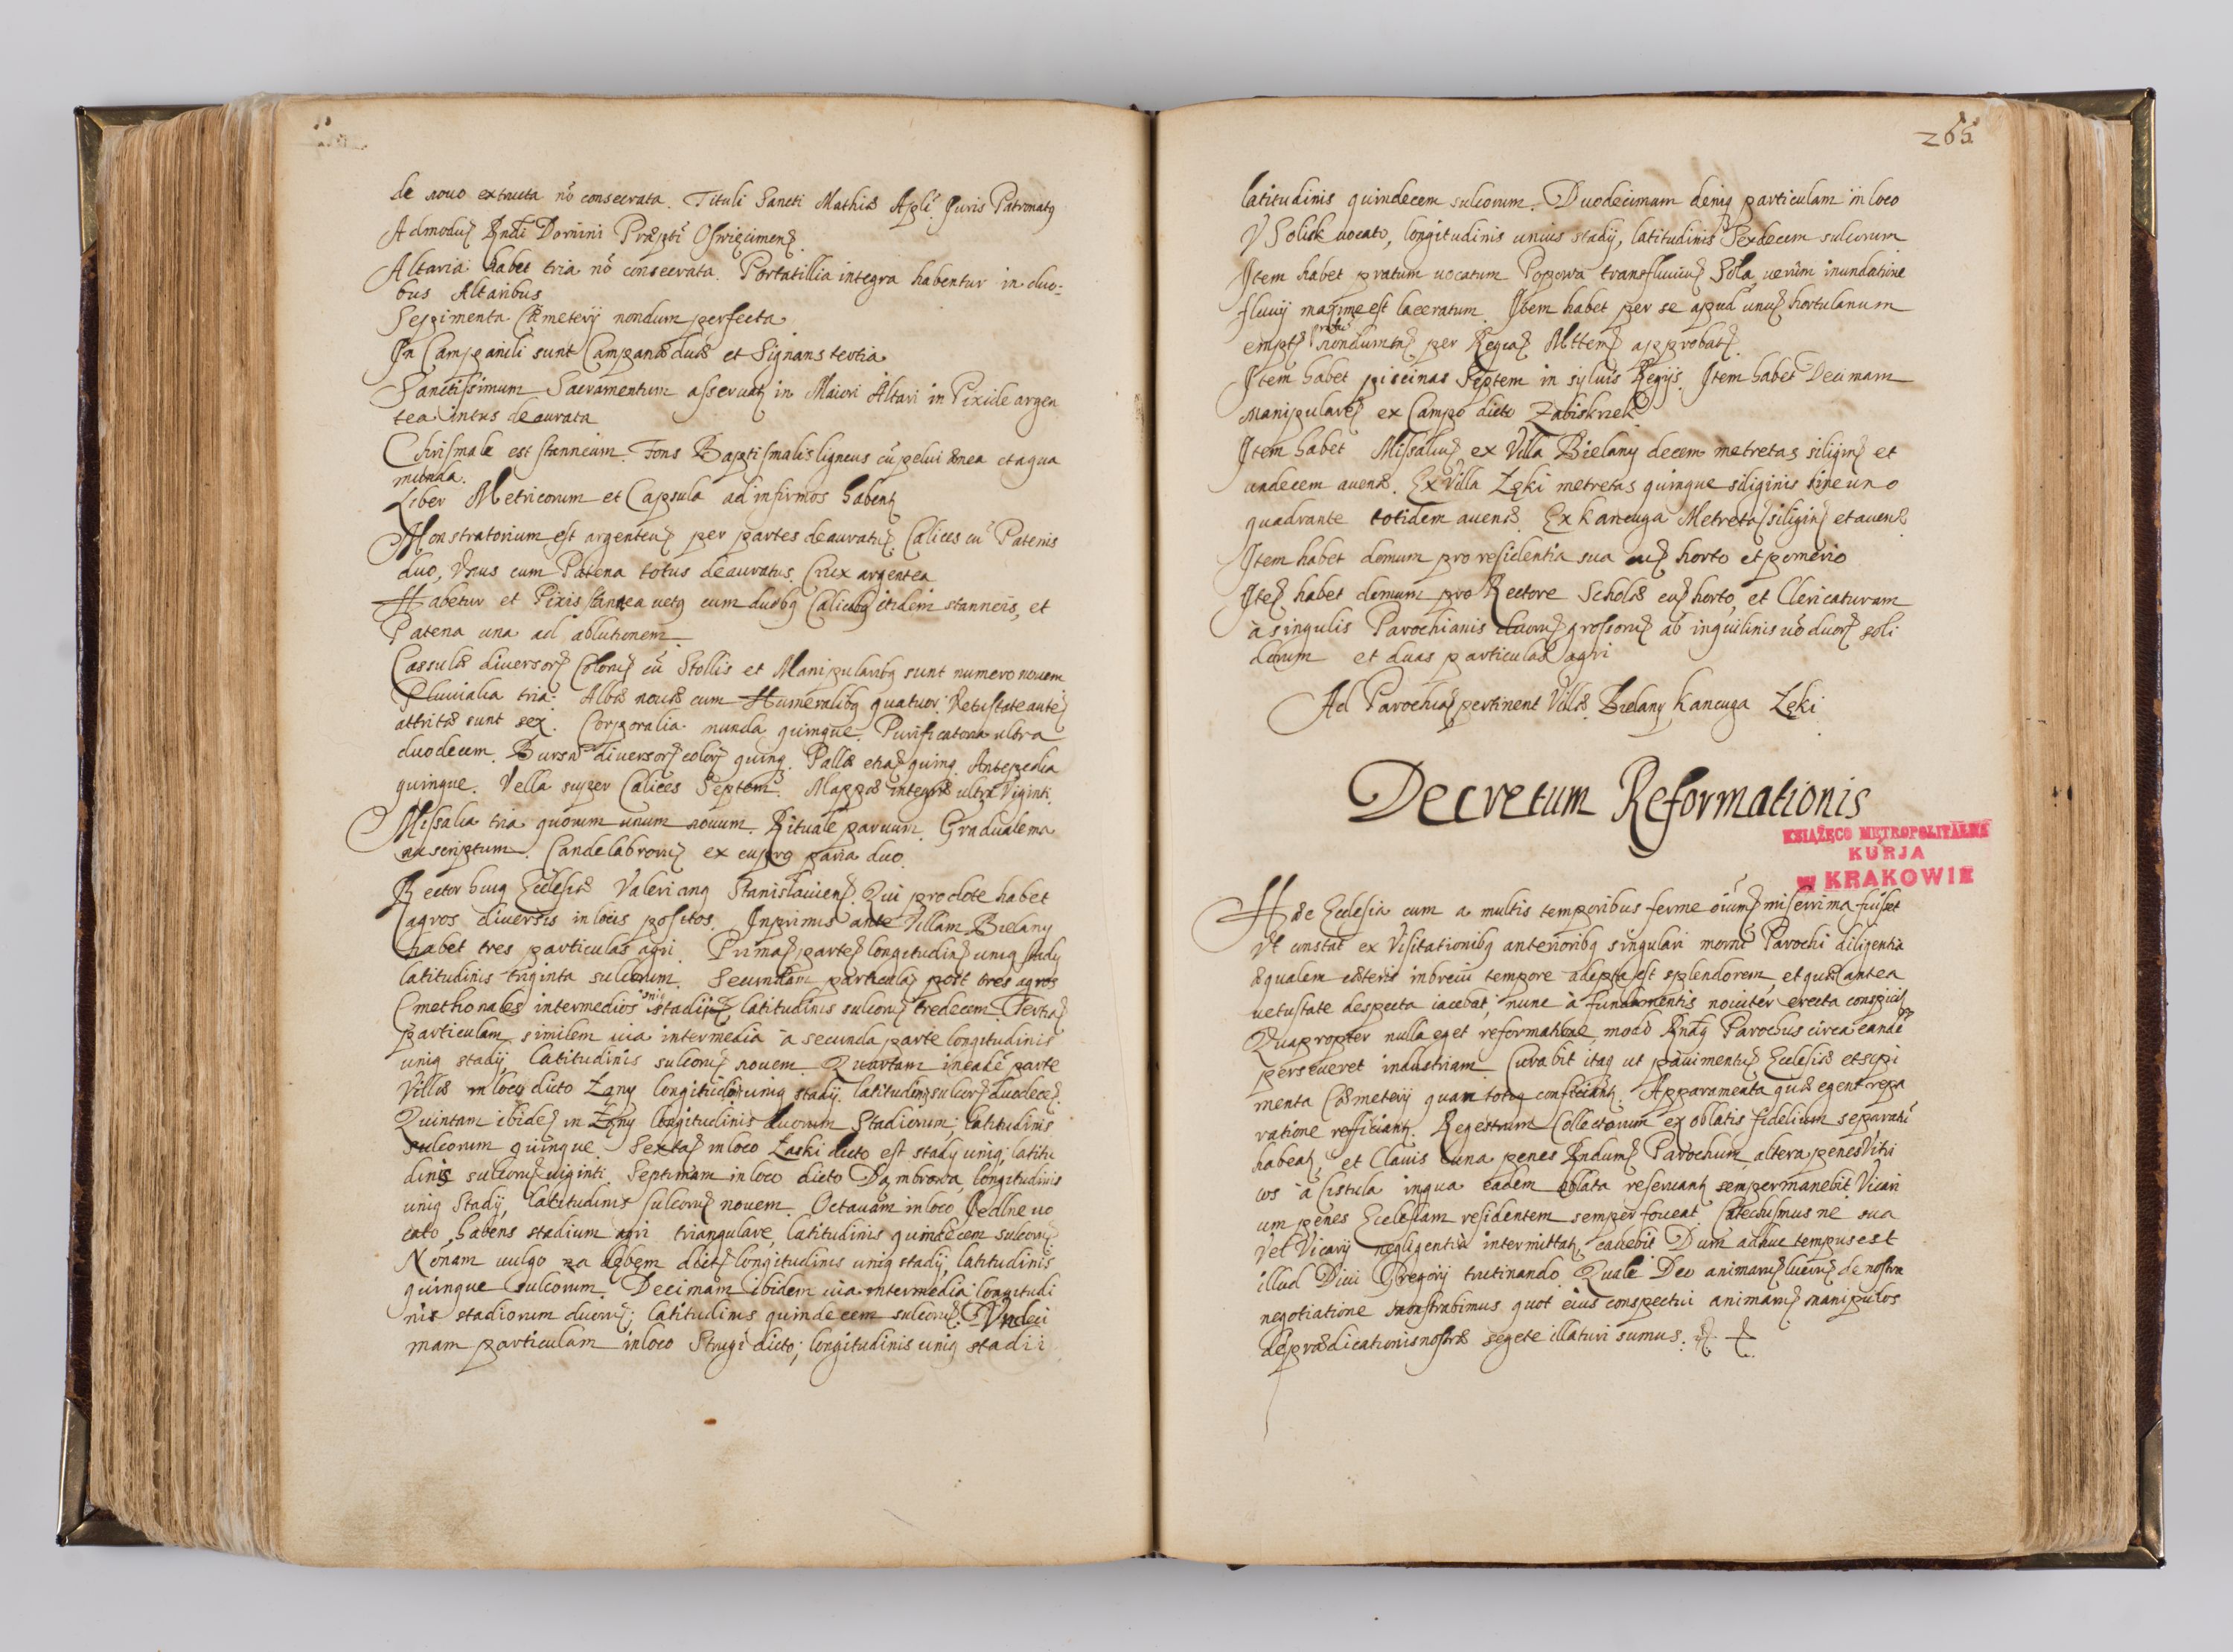 de nouo extructa nō consecrata. Tituli Sancti Mathiæ Apli Juris Patronatꝰ
Admodū Rndi Domini Præpti Oswięcimenꝭ
Altaria habet tria nō consecrata. Portatillia integra habentur in duo-
bus Altaribus
Sepimenta Cæmeterij nondum perfecta
In Campanili sunt Campanæ duæ et Signans tertia
Sanctissimum Sacramentum asseruatꝛ in Maiori Altari in Pixide argen
tea intus deaurata
Chrismale est stanneum. Fons Baptismalis ligneus cū pelui ænea et aqua
munda.
Liber Metricorum et Capsula ad infirmos habentꝛ
Monstratorium est argenteū per partes deauratū. Calices cū Patenis
duo, Vnus cum Patena totus deauratus. Crux argentea
Habetur et Pixis stannea uetꝰ cum duobꝰ Calicibꝰ itidem stanneis, et
Patena una ad ablutionem
Cassulæ diuersorꝭ Colorꝭ cū Stollis et Manipularibꝰ sunt numero nouem
Pluuialia tria. Albæ nouæ cum Humeralibꝰ quatuor. Vetustate autē
attritæ sunt sex. Corporalia munda quinque. Purificatoria ultra
duodecem. Bursæ diuersorꝭ colorꝭ quinqꝫ. Pallæ etiā quinqꝫ. Antepedia
quinque. Vella super Calices Septem. Mappæ integræ ultra Viginti.
Missalia tria quorum unum nouum. Rituale paruum. Graduale ma
nuscriptum. Candelabrorū ex cupro paria duo.
Rector huiꝰ Ecclesiæ Valerianꝰ Stanislauienꝭ. Qui pro dote habet
agros diuersis in locis positos. Inprimis ante Villam Bielany
habet tres particulas agri. Primā partē longitudinꝭ uniꝰ stadij
latitudinis triginta sulcorum. Secundam particulā post tres agros
Cmethonales intermedios stadij latitudinis sulcorū tredecem. Tertiā
particulam similem uia intermedia à secunda parte longitudinis
uniꝰ stadij, latitudinis sulcorū nouem. Quartam in eadē parte
Villæ in loco dicto Łąny longitudinꝭ uniꝰ stadij. latitudinꝭ sulcorꝭ duodecē.
Quintam ibidē in Łąny longitudinis duorum Stadiorum; latitudinis
sulcorum quinque. Sextā in loco Łaski dicto est stadij uniꝰ; latitu
dinis sulcorū uiginti Septimam in loco dicto Dąmbrowa, longitudinis
uniꝰ Stadij, latitudinis sulcorū nouem. Octauam in loco Jedlne uo
cato, habens stadium agri triangulare, latitudinis quindecem sulcorū
Nonam uulgo za dębem dictā longitudinis uniꝰ stadij, latitudinis
quinque sulcorum. Decimam ibidem uia intermedia longitudi
nis stadiorum duorū; latitudinis quindecem sulcorū. Vndeci
mam particulam in loco Strugi dicto; longitudinis uniꝰ stadii
265
latitudinis quindecem sulcorum. Duodecimam deniqꝫ particulam in loco
V Solisk uocato, longitudinis unius stadij, latitudinis Sexdecem sulcorum
Item habet pratum uocatum Popowa trans fluuiū Sola, uerùm inundatione
fluuij maxime est laceratum. Item habet per se apud unū hortulanum
emptū nondum per Regiā Mttem approbatꝭ.
Item habet piscinas Septem in syluis Regijs. Item habet Decimam
Manipularē ex Campo dicto Zabiskrzek
Item habet Missaliū ex Villa Bielany decem metretas siliginꝭ et
undecem auenæ. Ex Villa Łęki metretas quinque siliginis sine uno
quadrante totidem auenæ. Ex Kancuga Metretas siliginꝭ et auenꝭ.
Item habet domum pro residentia sua cū horto et pomerio
Itē habet domum pro Rectore Scholæ cū horto, et Clericaturam
à singulis Parochianis duorū grossorū ab inquilinis uō duorꝭ soli
dorum et duas particulas agri
Ad Parochiā pertinent Villæ Bielany Kancuga Łęki
Decretum Reformationis
KSIĄŻĘCO METROPOLITALNA
KURJA
W KRAKOWIE
Hæc Ecclesia cum a multis temporibus ferme oiūm miserrima fuisset
Vt constat ex Visitationibꝰ anterioribꝰ singulari morni Parochi diligentia
æqualem cæteris in breui tempore adepta est splendorem, et quæ antea
uetustate despecta iacebat; nunc à fundamentis nouiter erecta conspicitꝛ
Quapropter nulla eget reformatione, modò Rndꝰ Parochus circa eandē
perseueret industriam. Curabit itaqꝫ ut pauimentū Ecclesiæ et sepi
menta Cæmeterij quam totꝰ conficiantꝛ. Apparamenta quæ egent repa
ratione refficiantꝛ. Regestrum Collectarum ex oblatis fidelium separatū
habeatꝛ, et Clauis una penes Rndum Parochum, altera penes Vitri
cos à Cistula in qua eadem oblata reseruantꝛ semper manebit. Vicari
um penes Ecclesiam residentem semper foueat. Catechismus ne sua
Vel Vicarij negligentia intermittatꝛ, cauebit Dum adhuc tempus est
illud Diui Gregorij trutinando. Quale Deo animarū lucrū de nostra
negotiatione monstrabimus quot eius conspectui animarū manipulos
de prædicationis nostræ segete illaturi sumus.